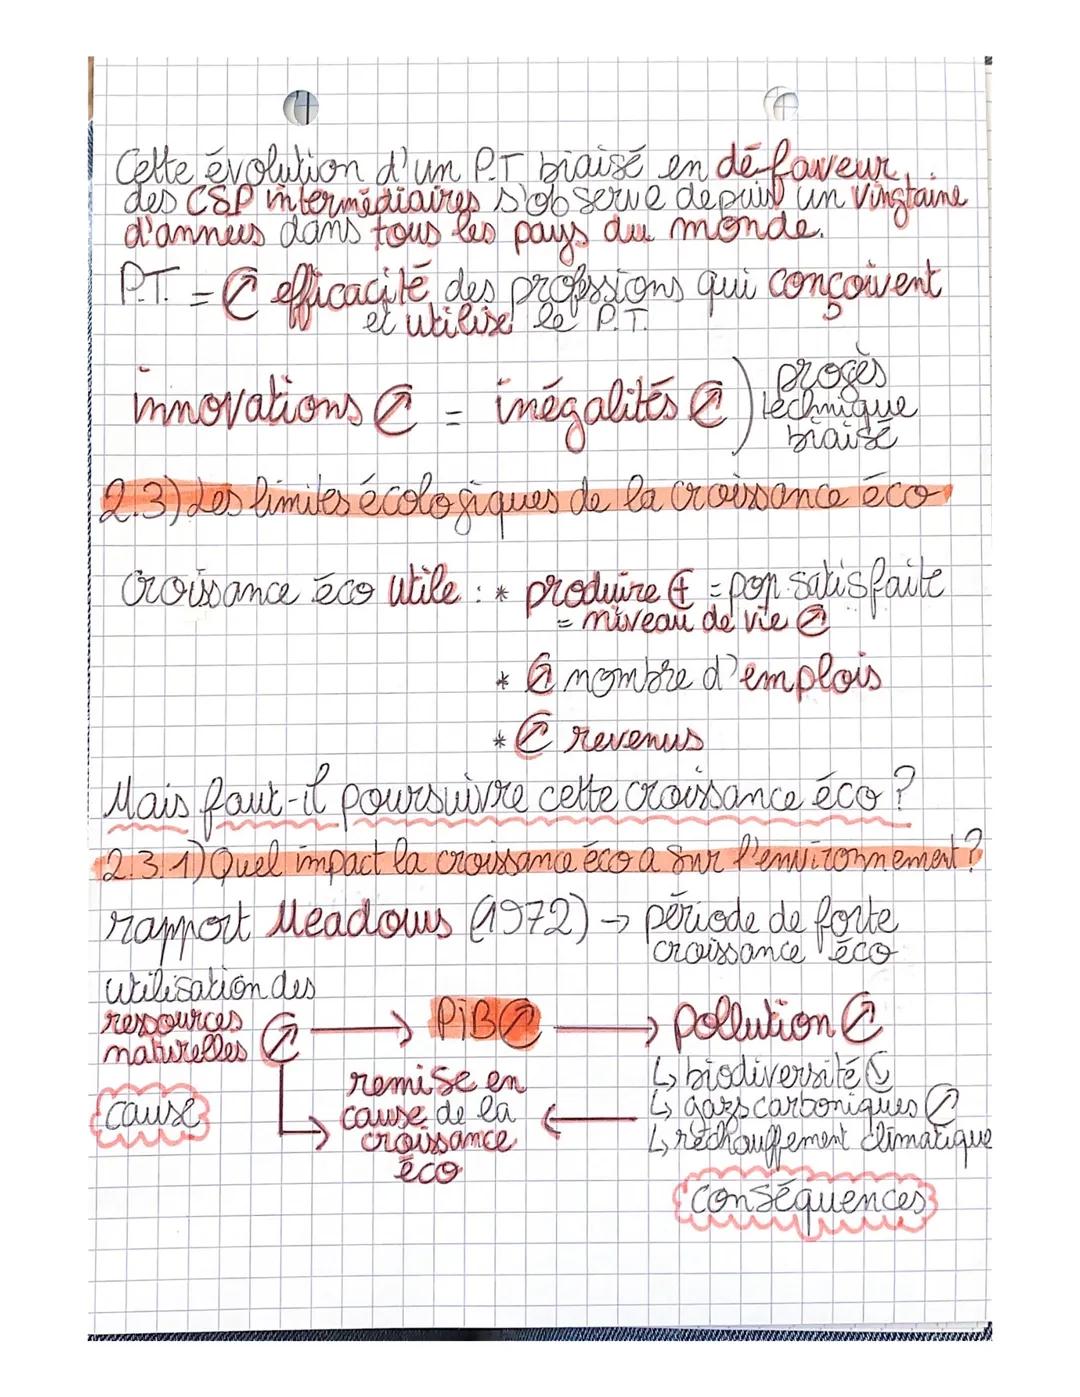 Cette évolution d'un P.T biaisé en défaveur
des CSP intermédiaires s'observe depuis un vingtaine
d'années dans tous les pays du monde.
P.T. = ↗ efficacité des professions qui conçoivent
et utilise le P.T.
innovations ↗ = inégalités ↗ ) progès
technique
biaisé
2.3) Les limites écologiques de la croissance éco
Croissance éco utile : * produire + = pop. satisfaite
= niveau de vie ↗
* ↗ nombre d'emplois
* ↗ revenus
Mais faut-il poursuivre cette croissance éco ?
2.3.1) Quel impact la croissance éco a sur l'environnement ?
rapport Meadows (1972) → période de forte
croissance éco
utilisation des
ressources
naturelles ↗ → PiB ↗ → pollution ↗
↳ biodiversité ↘
↳ gazs carboniques ↗
↳ réchauffement climatique
remise en
cause de la
croissance
éco
cause
conséquences